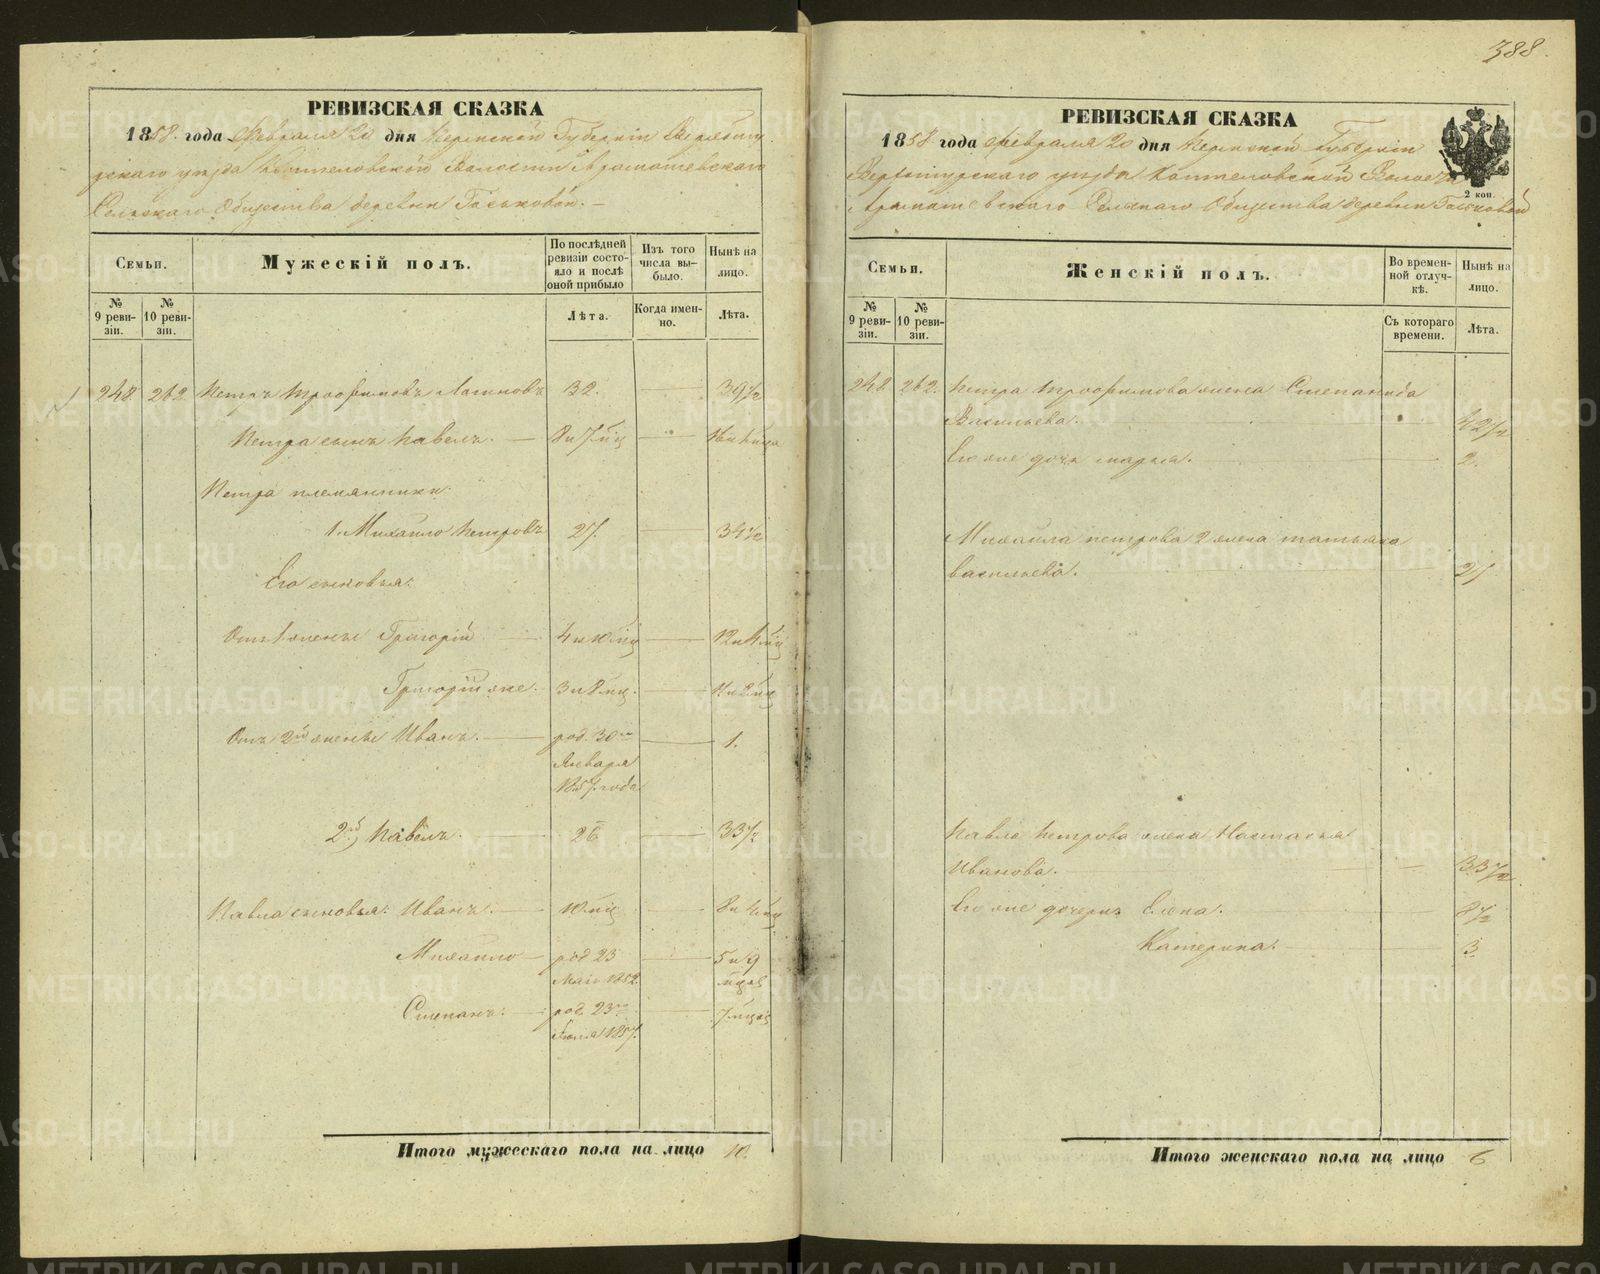 388.
РЕВИЗСКАЯ СКАЗКА
1858 года Февраля 20 дня Пермской Губерніи Верхоту
рскаго уѣзда Коптеловской Волости Арамашевскаго
Сельскаго Общества деревни Госьковой. —
Семьи.
Мужескій полъ.
По послѣдней ревизіи состояло и послѣ оной прибыло
Изъ того числа выбыло.
Нынѣ на лицо.
№ 9 ревизіи.
№ 10 ревизіи.
Лѣта.
Когда именно.
Лѣта.
248 262 Петръ Трофимовъ 32. — 39½
Петра сынъ Павелъ. — 8 и 7 мц —
Петра племянники:
1. Михайло Петровъ 27. — 34½
Его сыновья:
Отъ 1 жены Григорій — 4 и 10 мц — 12 и 4 мц
Григорій же. 3 и 8 мц. — 11 и 2 мц
Отъ 2й жены Иванъ. — род. 30го — 1.
Января
1857 года
2й, Павелъ. — 26 — 33½
Павла сыновья: Иванъ. — 10 мц — 8 и 4 мц
Михайло — род 23 — 5 и 9
Мая 1852 мцов
Степанъ. — род. 23го — 7 мцов
1857.
Итого мужескаго пола на лицо 10.
РЕВИЗСКАЯ СКАЗКА
1858 года Февраля 20 дня Пермской Губерніи
Верхотурскаго уѣзда Коптеловской Волости
Арамашевскаго Сельскаго Общества деревни Госьковой
2 коп.
Семьи.
Женскій полъ.
Во временной отлучкѣ.
Нынѣ на лицо.
№ 9 ревизіи.
№ 10 ревизіи.
Съ котораго времени.
Лѣта.
248 262. Петра Трофимова жена Степанида
Васильева. — 42½
Его же дочь Марья. — 2.
Михайла Петрова 2 жена Татьяна
Васильева. — 27
Павла Петрова жена Настасья
Иванова. — 33½
Его же дочери Елена. — 8½
Катерина. — 3
Итого женскаго пола на лицо 6
METRIKI.GASO-URAL.RU